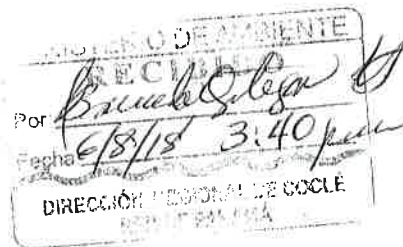 MINISTERIO DE AMBIENTE
RECIBIDO
Por
Fecha 6/8/18 3:40 pm
DIRECCIÓN REGIONAL DE COCLÉ